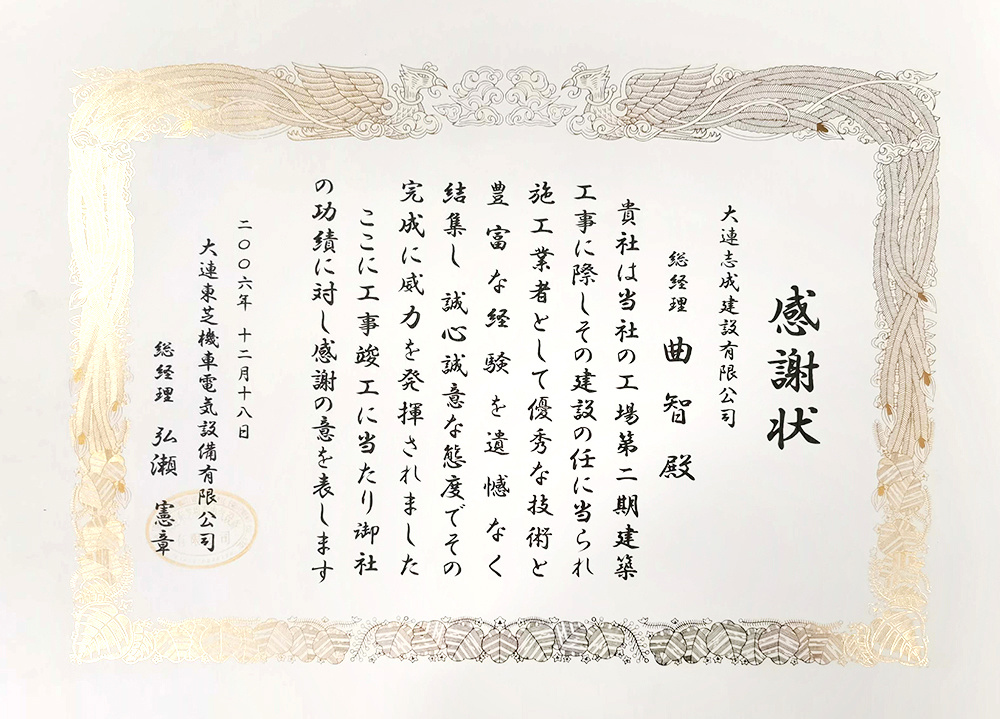 感謝状
大連志成建設有限公司
総経理 曲智殿
貴社は当社の工場第二期建築
工事に際しその建設の任に当られ
施工業者として優秀な技術と
豊富な経験を遺憾なく
結集し 誠心誠意な態度でその
完成に威力を発揮されました
ここに工事竣工に当たり御社
の功績に対し感謝の意を表します
二〇〇六年 十二月十八日
大連東芝機車電気設備有限公司
総経理 弘瀬 憲章